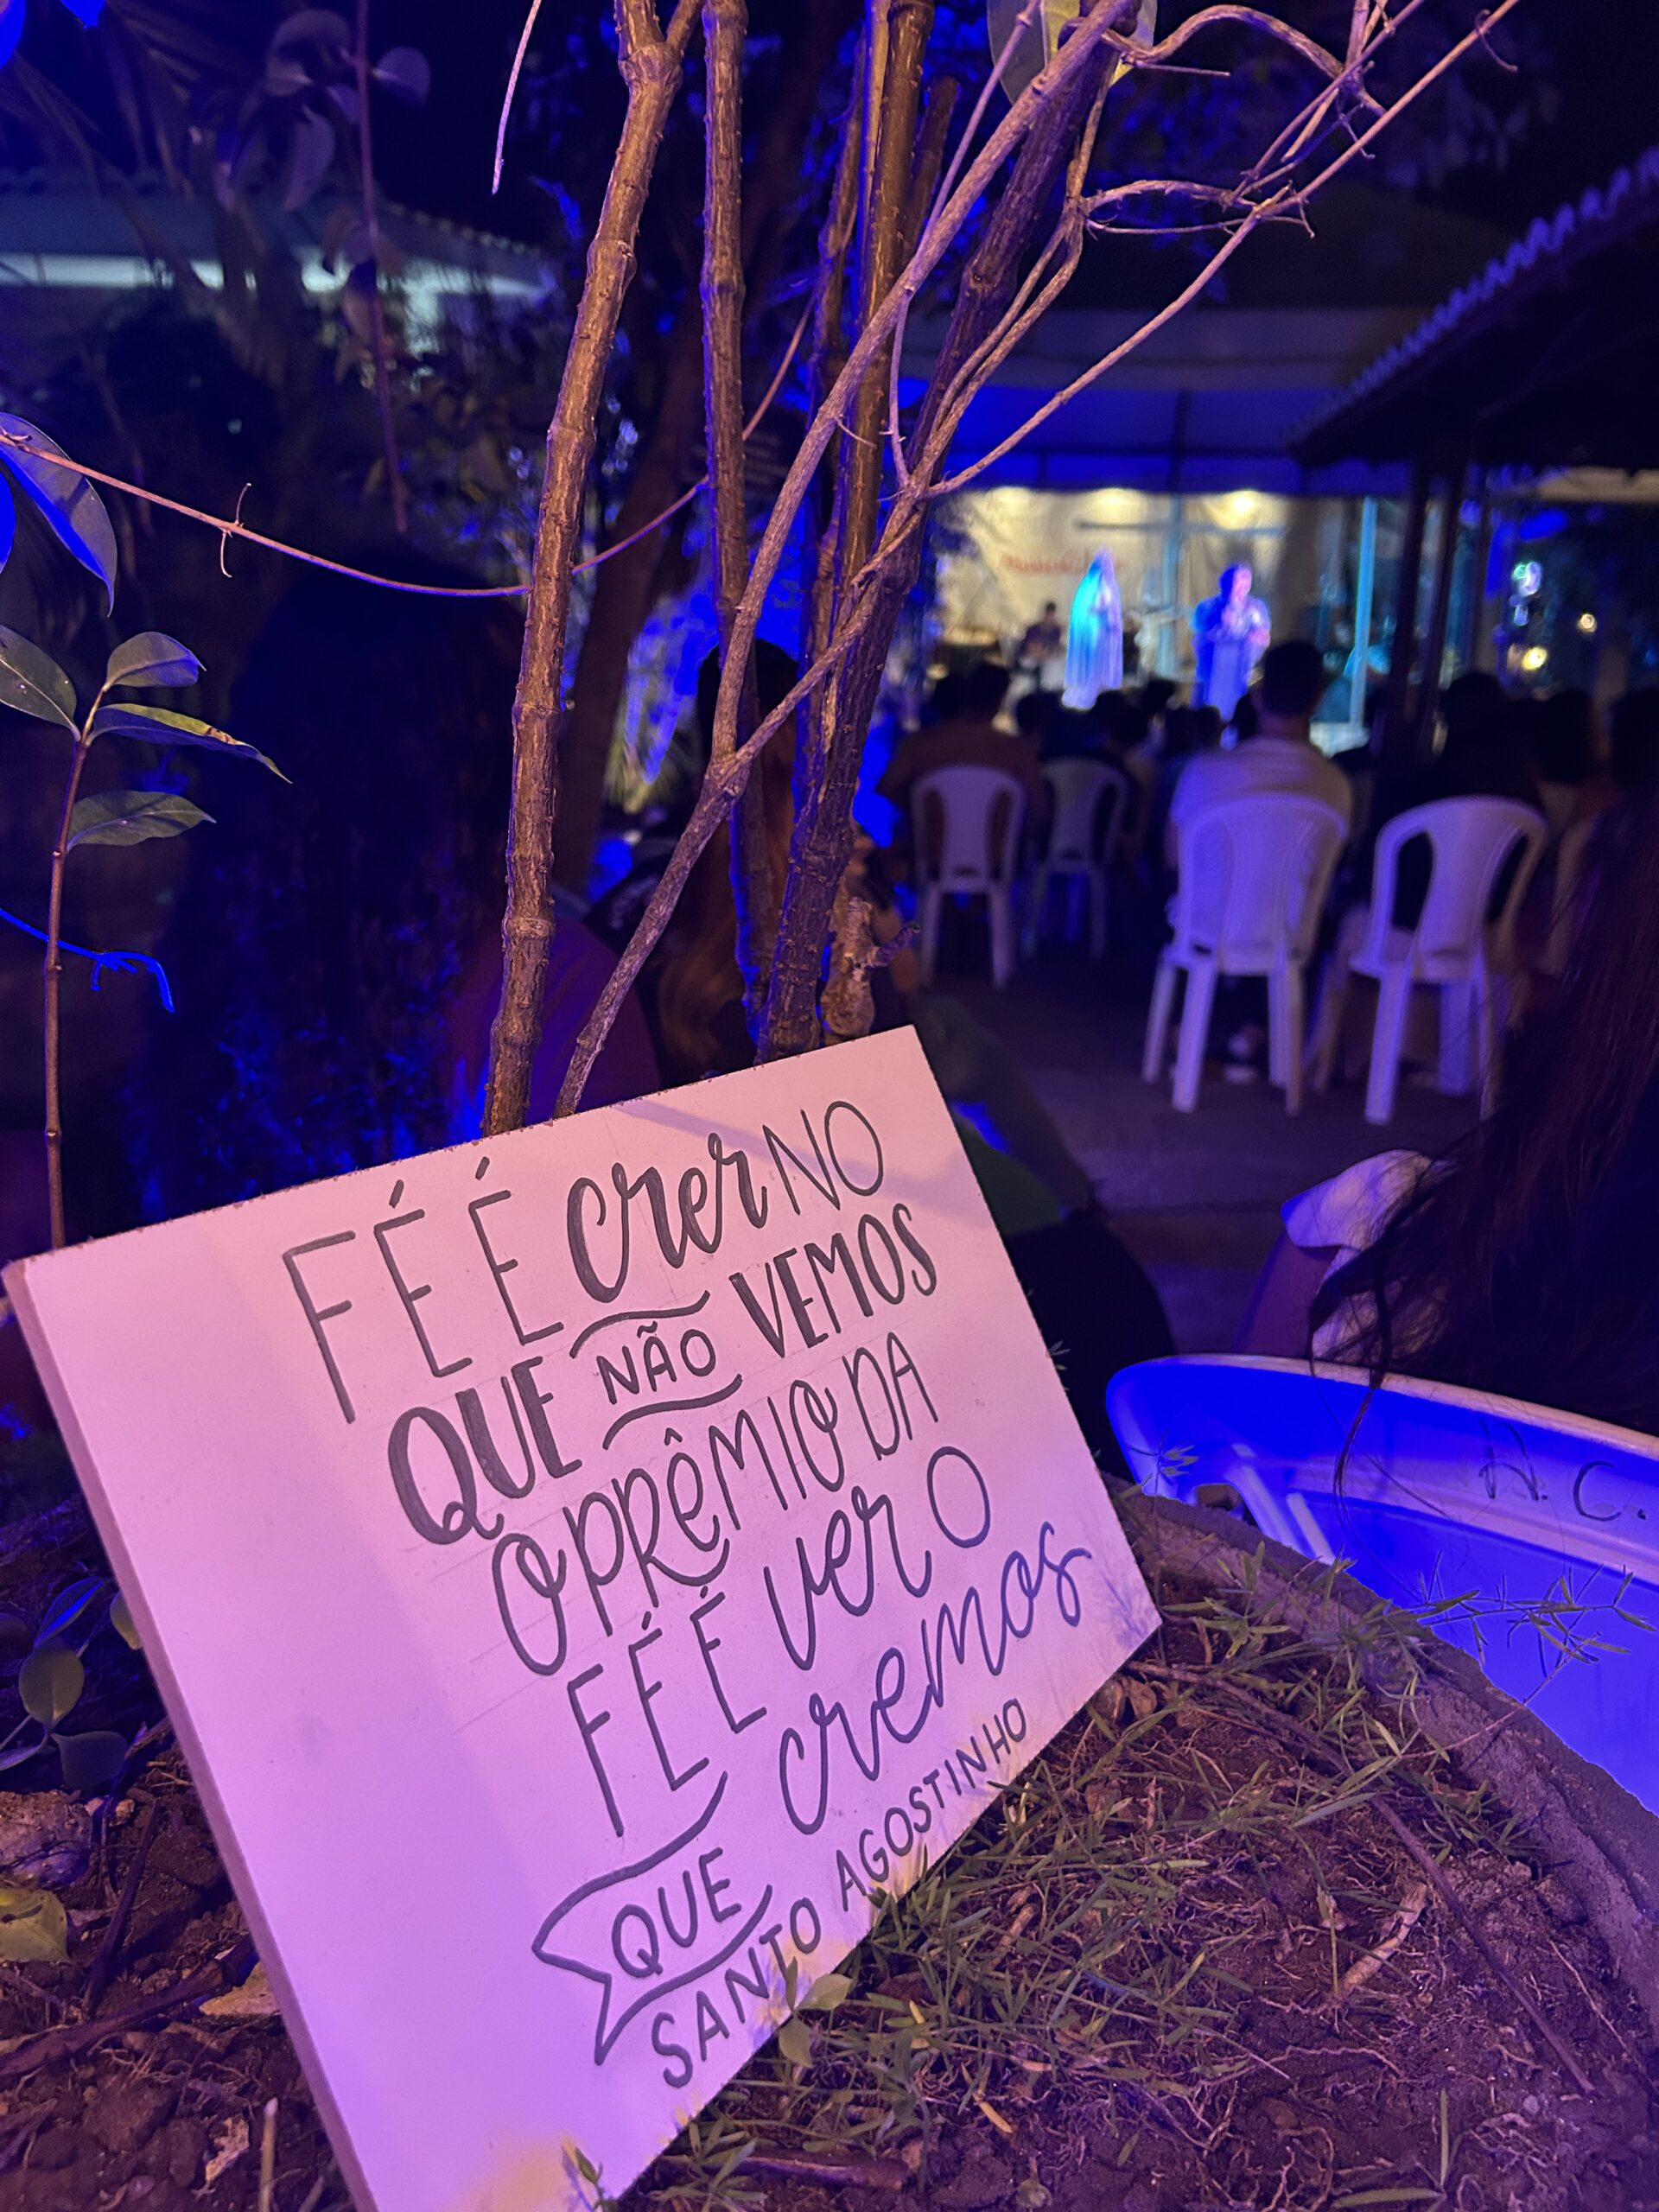 FÉ É crer NO
QUE NÃO VEMOS
O PRÊMIO DA
FÉ É ver O
QUE cremos
SANTO AGOSTINHO
A. C.